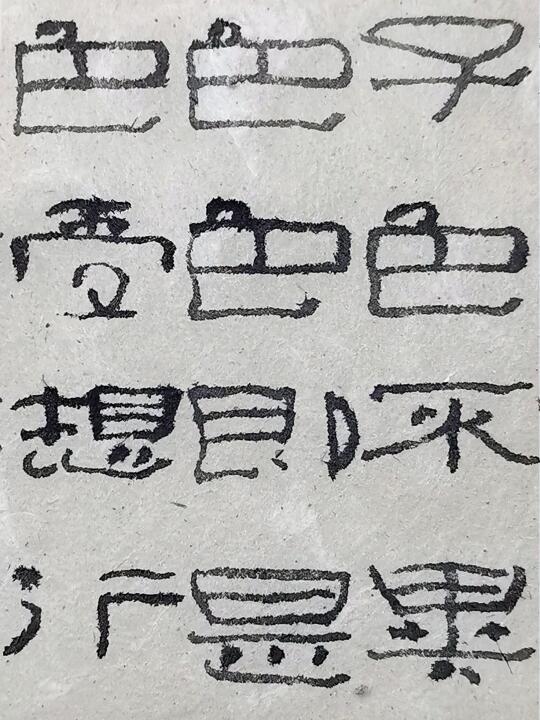 子色不異
色色即是
色受想行